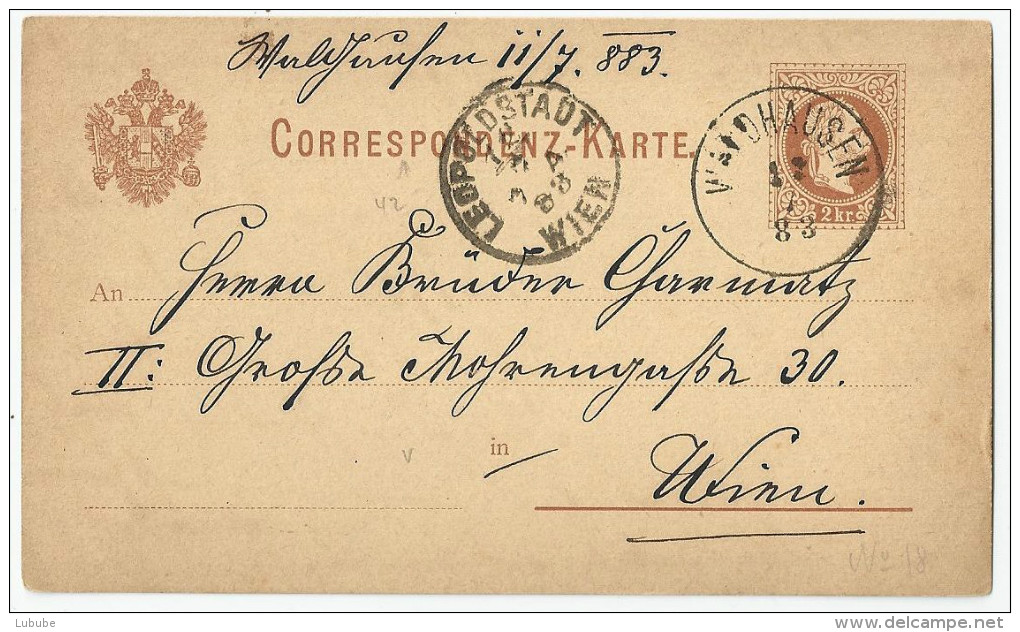 Waldhausen 11/7. 883.
CORRESPONDENZ-KARTE.
LEOPOLDSTADT
WIEN
83
WALDHAUSEN
83
2 kr.
42
An Herrn Brüder Charmatz
II: Große Mohrengaße 30.
in
Wien.
No 18
Lubube